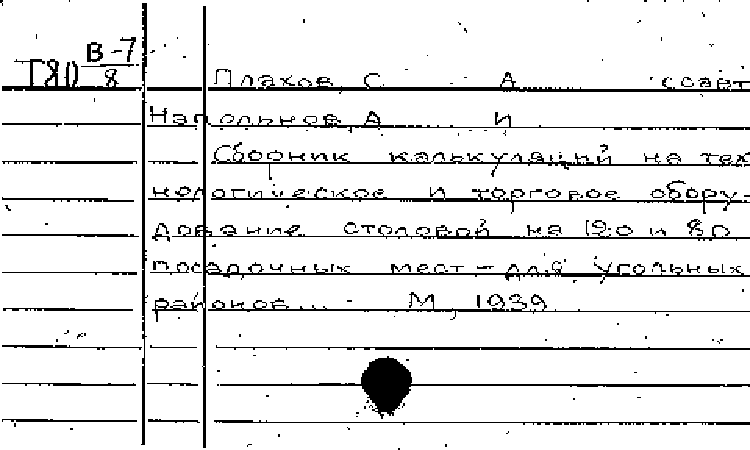 В-7
Т80 8
Плахов, С. А. соавт
Напольнов, А. И.
Сборник калькуляций на тех
нологическое и торговое обору-
дование столовой на 120 и 80
посадочных мест - для угольных
районов... М, 1939